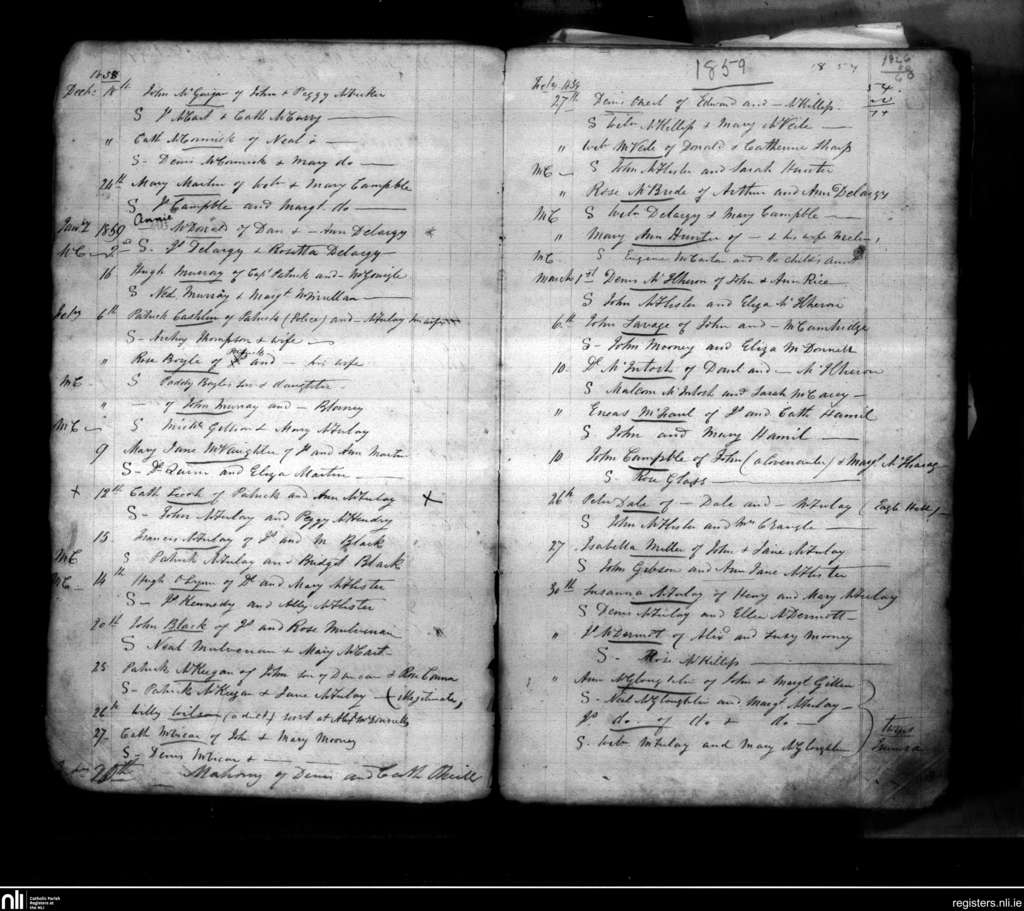 1858
Decr 18th John McGuigan of John & Peggy McAuley
S Jn McCart & Cath McCarry
" Cath McCormick of Neal &
S - Denis McCormick & Mary do
24th Mary Martin of Wm & Mary Campble
S Jn Campble and Margt do
Jany 1859 Annie McDonald of Dan & - Ann Delargy *
MC - 2d S. Jn Delargy & Rosetta Delargy
16 Hugh Murray of Capt Patrick and - McGonigle
S Ned Murray & Margt
Feby 6th Patrick Cashlin of Patrick (Police) and - McAulay
S - Archy Thompson & wife
" Rose Boyle of and - his wife
MC S Paddy Boyles son & daughter
" - of John Murray and - Blorney
MC - S Mick Gillion & Mary McAulay
9 Mary Jane McNaughten of Jn and Ann Martin
S - Dl Quinn and Eliza Martin
x 12th Cath of Patrick and Ann McAulay x
S - John McAulay and Peggy McHendry
15 Francis McAulay of Jn and M Black
MC S Patrick McAulay and Bridget Black
MC - 14th Hugh O Lynn of Dl and Mary McAlister
S - Jn Kennedy and Ally McAlister
20th John Black of Jn and Rose Mulvenan
S Neal Mulvenan & Mary McCart
25 Patrick McKeegan of John son of Duncan & Rose
S - Patrick McKeegan & Jane McAulay - (illegitimate)
26th Willy Wilson (adult) servt at
27 Cath of John & Mary Mooney
S - Denis &
20th Mahony of Denis and Cath ONeill
1859
1857
1926
68
54
74
Feby 1859
27th Denis of Edward and - McKillip
S Wm McKillip & Mary McVeile
" Wm McVeile of Donald & Catherine Sharp
MC - S John McAlister and Sarah Hunter
" Rose McBride of Arthur and Ann Delargy
MC S Wm Delargy & Mary Campble
" Mary Ann Hunter of - & his wife
MC S Eugene McCarten and the childs aunt
March 1st Denis McIlheron of John & Ann Rice
S John McAlister and Eliza McIlheron
6th John Savage of John and - McCambridge
S - John Mooney and Eliza McDonnell
10 Dl McIntosh of Danl and - McIlheron
S Malcom McIntosh and Sarah McCarey
" Eneas McFaul of Jn and Cath Hamil
S John and Mary Hamil
10 John Campble of John (a Covenanter) & Margt
S - Rose Glass
26th Peter Dale of - Dale and - McAulay (Eagle Hill)
S John McAlister and Mrs
27 Isabella Miller of John & Jane McAulay
S John Gibson and Ann Jane McAlister
30th Susanna McAulay of Henry and Mary McAulay
S Denis McAulay and Ellen McDermott
" Jn McDermott of Alexr and Lucy Mooney
S - Rose McKillip
" Ann McGloughlin of John & Margt Gillan
S - Neil McGloughlin and Margt McAulay
Jn do. of do & do
S. Wm McAulay and Mary McGloughlin
twins
nli
Catholic Parish
Registers at
the NLI
registers.nli.ie